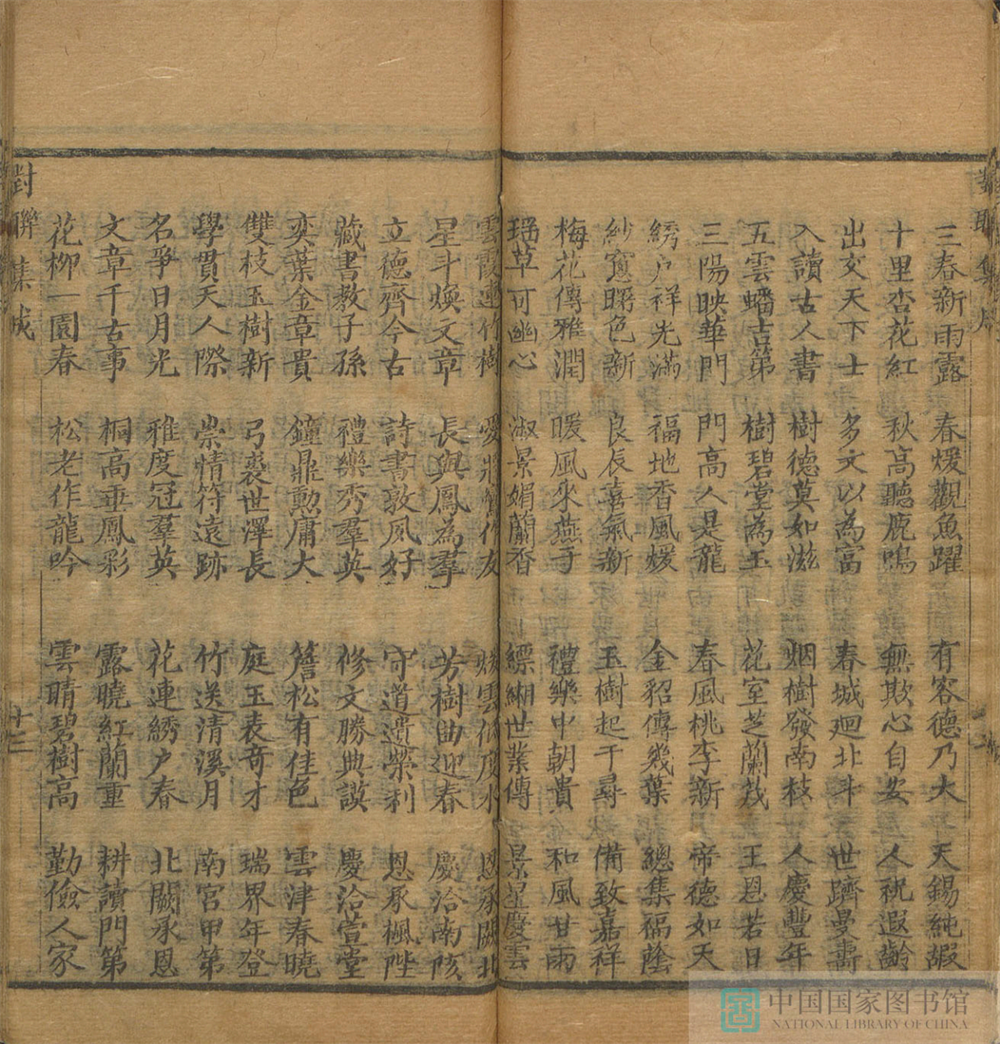 三春新雨露 春煖觀魚躍 有容德乃大 天錫純嘏
十里杏花紅 秋高聽鹿鳴 無欺心自安 人祝遐齡
出交天下士 多文以為富 春城廻北斗 世躋曼壽
入讀古人書 樹德莫如滋 烟樹發南枝 人慶豐年
五雲蟠吉第 樹碧堂為玉 花室芝蘭茂 王恩若日
三陽映華門 門高人是龍 春風桃李新 帝德如天
綉户祥光滿 福地香風煖 金貂傳幾葉 總集福蔭
紗窓曙色新 良辰喜氣新 玉樹起千尋 備致嘉祥
梅花傳雅潤 暖風來燕子 禮樂中朝貴 和風甘雨
瑶草可幽心 淑景媚蘭香 縹緗世業傳 景星慶雲
雲霞連竹樹 愛將竹作友 雲低度水 恩承闕北
星斗煥文章 長與鳳為羣 芳樹曲迎春 慶洽南陔
立德齊今古 詩書敦夙好 守道遺榮利 恩承楓陛
藏書教子孫 禮樂秀羣英 修文勝典謨 慶洽萱堂
奕葉金章貴 鐘鼎勳庸大 簷松有佳色 雲津春曉
雙枝玉樹新 弓裘世澤長 庭玉表奇才 瑞界年登
學貫天人際 崇情符遠跡 竹送清溪月 南宮甲第
名爭日月光 雅度冠羣英 花連綉户春 北闕承恩
文章千古事 桐高垂鳳彩 露曉紅蘭重 耕讀門第
花柳一園春 松老作龍吟 雲晴碧樹高 勤儉人家
對聯集成 十三
中国国家图书馆
NATIONAL LIBRARY OF CHINA